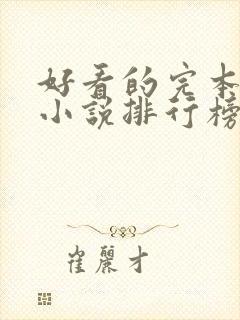 好看的完本
小说排行榜
崔丽才